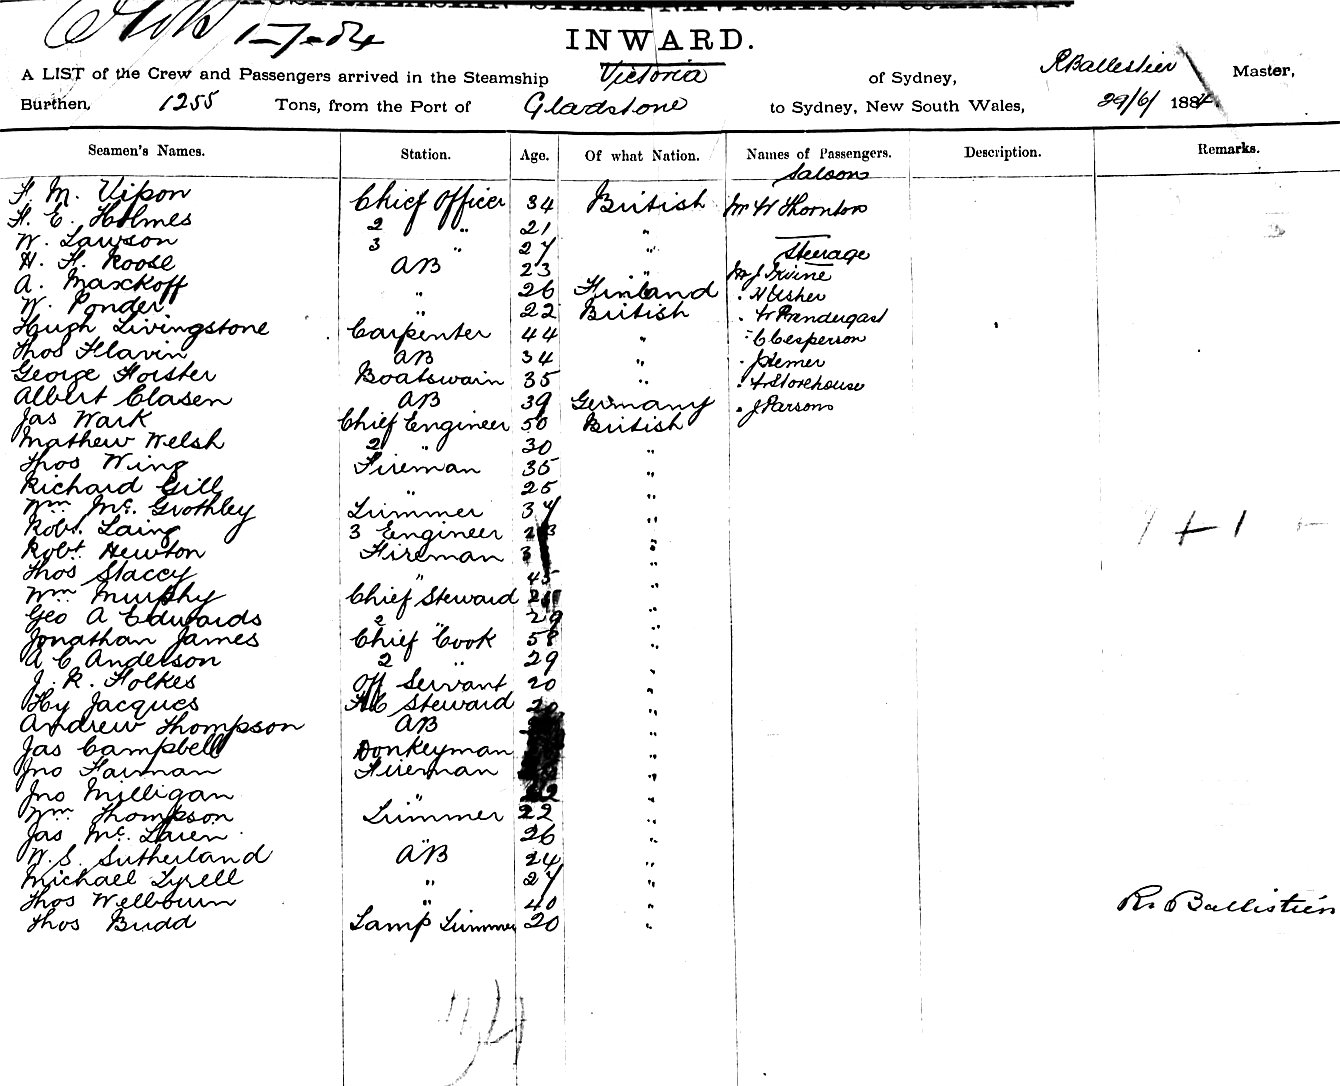 AUSTRALASIAN STEAM NAVIGATION COMPANY.
1-7-84
INWARD.
A LIST of the Crew and Passengers arrived in the Steamship Victoria of Sydney, R Ballestier Master,
Burthen, 1255 Tons, from the Port of Gladstone to Sydney, New South Wales, 29/6/ 1884
Seamen's Names. Station. Age. Of what Nation. Names of Passengers. Description. Remarks.
Saloon
F. M. Vipon Chief Officer 34 British Mr W Thornton
F. E. Holmes 2 " 21 "
W. Lawson 3 " 27 " Steerage
H. F. Roose AB 23 " Mr J Irvine
A. Marckoff " 26 Finland " N Usher
W. Ponder " 22 British " Fr Prendergast
Hugh Livingstone Carpenter 44 " " C Cesperson
Thos Flavin AB 34 " " J Hemer
George Forster Boatswain 35 " " Fr Storehouse
Albert Clasen AB 39 Germany " J Parsons
Jas Wark Chief Engineer 50 British
Mathew Welsh 2 " 30 "
Thos Wing Fireman 35 "
Richard Gill " 25 "
Wm Mc. Grothley Trimmer 37 "
Robt. Laing 3 Engineer 23 "
Robt. Hewton Fireman 3 "
Thos Staccy " 45 "
Wm Murphy Chief Steward "
Geo A Edwards 2 " 29 "
Jonathan James Chief Cook 58 "
A C Anderson 2 " 29 "
J. R. Folkes Off Servant 20 "
Hy Jacques F.C Steward 20 "
Andrew Thompson AB "
Jas Campbell Donkeyman "
Jno Farman Fireman "
Jno Milligan " 22 "
Wm Thompson Trimmer 22 "
Jas Mc. Laren " 26 "
W. S. Sutherland AB 24 "
Michael Tyrell " 27 "
Thos Welbourn " 40 "
Thos Budd Lamp Trimmer 20 "
R. Ballistier